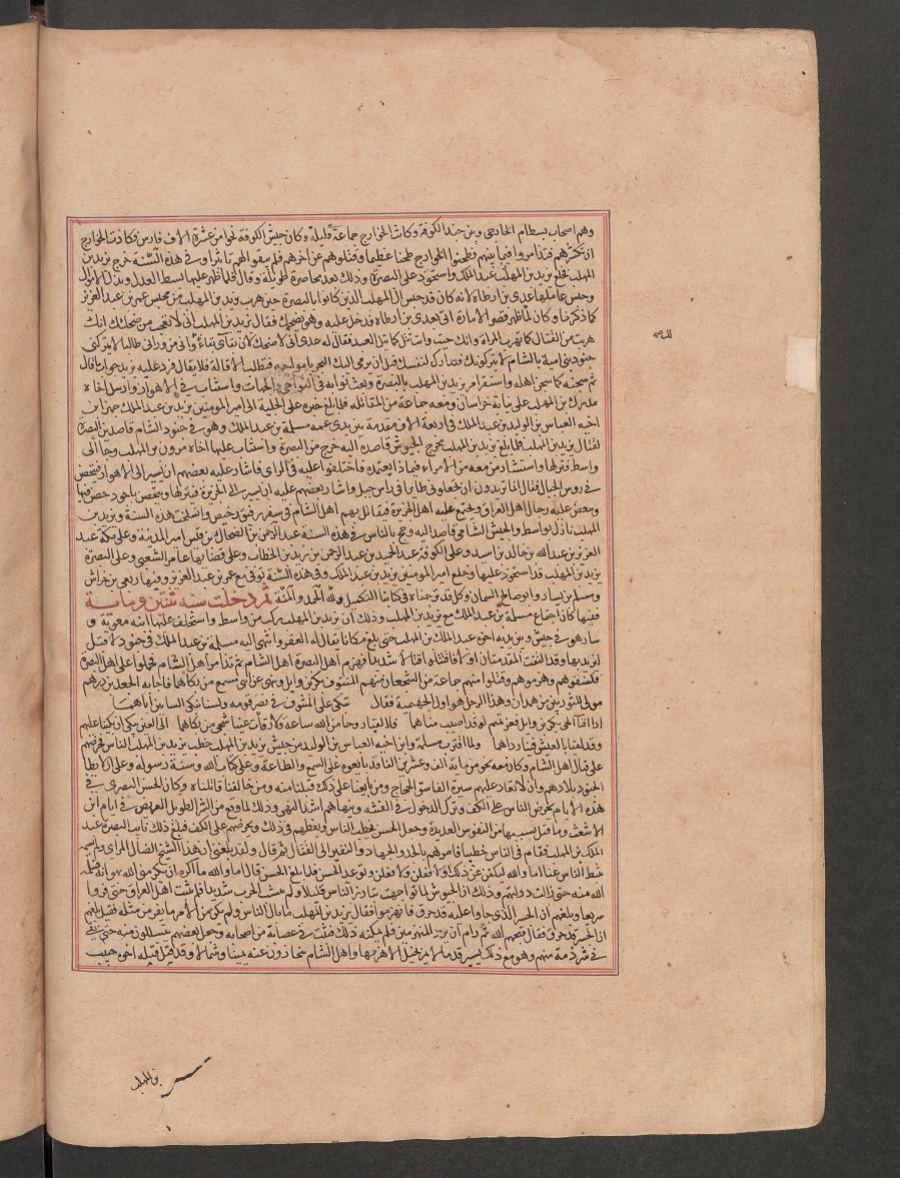 وهم اصحاب بسطام الخارجي وبين جند الكوفة وكانت الخوارج جماعة قليلة وكان جيش الكوفة نحوا من عشرة الاف فارس وكادت الخوارج
ان تكسرهم فتذامروا فيما بينهم فطحنوا الخوارج طحنا عظيما وقتلوهم عن اخرهم فلم يبقوا لهم ثائرا وفي هذه السنة خرج يزيد بن
المهلب فخلع يزيد بن عبد الملك واستحوذ على البصرة وذلك بعد محاصرة طويلة وقتال فلما ظهر عليها بسط العدل وبذل الاموال
وحبس عاملها عدي بن ارطاة لانه كان قد حبس ال المهلب الذين كانوا بالبصرة حين هرب يزيد بن المهلب من محبس عمر بن عبد العزيز
كما ذكرنا وكان لما ظهر قصر الامارة اتى بعدي بن ارطاه فدخل عليه وهو يضحك فقال يزيد بن المهلب اني لاعجب من ضحكك انك
هربت من القتال كما تهرب المراة وانك جيت وانت تتل كما يتل العبد فقال له عدي اني لاضحك لان بقاي بقاء لك واني من ورائي طالبا لا يتركني
جنود بني امية بالشام لا يتركونك فتدارك نفسك قبل ان يرمي اليك البحر بامواجه فتطلب الاقالة فلا تقال فرد عليه يزيد جواب ما قال
ثم سجنه كما سجن اهله واستقر امر يزيد بن المهلب بالبصرة وبعث نوابه في النواحي والجهات واستناب في الاهواز وارسل اخاه
مدرك بن المهلب على نيابة خراسان ومعه جماعة من المقاتلة فلما بلغ خبره على الجلية الى امير المومنين يزيد بن عبد الملك جهز ابن
اخيه العباس بن الوليد بن عبد الملك في اربعة الاف مقدمة بين يدي عمه مسلمة بن عبد الملك وهو في جنود الشام قاصدين البصرة
لقتال يزيد بن المهلب فلما بلغ يزيد بن المهلب مخرج الجيوش قاصدة اليه خرج من البصرة واستناب عليها اخاه مروان بن المهلب وجا الى
واسط فنزلها واستشار من معه من الامراء فيما ذا يعتمد فاختلفوا عليه في الراي فاشار عليه بعضهم ان يسير الى الاهواز فيتحصن
في روس الجبال فقال انما تريدون ان تجعلوني طايرا في راس جبل واشار بعضهم عليه ان يسير الى الجزيرة فينزلها ويتحصن باجود حصن فيها
ويجتمع عليه رجال اهل العراق ويجتمع عليه اهل الجزيرة فيقاتل بهم اهل الشام وانسلخت هذه السنة ويزيد بن
المهلب نازل بواسط والجيش الشامي قاصد اليه وحج بالناس في هذه السنة عبد الرحمن بن الضحاك بن قيس امير المدينة وعلى مكة عبد
العزيز بن عبد الله بن خالد بن اسيد وعلى الكوفة عبد الحميد بن عبد الرحمن بن زيد بن الخطاب وعلى قضائها عامر الشعبي وعلى البصرة
يزيد بن المهلب قد استحوذ عليها وخلع امير المومنين يزيد بن عبد الملك وفي هذه السنة توفي عمر بن عبد العزيز وفيها ربعي بن خراش
ومسلم بن يسار وابو صالح السمان وكل قد ترجمناه في كتابنا التكميل ولله الحمد والمنة ثم دخلت سنة ثنتين وماية
ففيها كان اجتماع مسلمة بن عبد الملك مع يزيد بن المهلب وذلك ان يزيد بن المهلب ركب من واسط واستخلف عليها ابنه معوية و
سار هو في جيش وبين يديه اخوه عبد الملك بن المهلب حتى بلغ مكانا يقال له العقر وانتهى اليه مسلمة بن عبد الملك في جنود لا قبل
ليزيد بها وقد التقت المقدمتان اولا فاقتتلوا قتالا شديدا فهزم اهل البصرة اهل الشام ثم تذامر اهل الشام فحملوا على اهل البصرة
فكشفوهم وهزموهم وقتلوا منهم جماعة من الشجعان منهم المنتوف بكر بن وايل فاجابه الجعد بن درهم
مولى من همدان وهذا الرجل هو اول الجهمية فقال تبكي على المنتوف في نصر قومه ولسنا نبكي الشايدين اباهما
وقد ولما اقترب مسلمة وابن اخيه العباس بن الوليد من جيش يزيد بن المهلب خطب يزيد بن المهلب الناس فحرضهم
على قتال اهل الشام وكان معه نحو من ماية الف وعشرين الفا وقد بايعوه على السمع والطاعة وعلى كتاب الله وسنة رسوله وعلى ان لا تطا
الجنود بلادهم وان لا تعاد عليهم سيرة الفاسق الحجاج ومن بايعنا على ذلك قبلنا منه ومن خالفنا قاتلناه وكان الحسن البصري في
هذه الايام يحرض الناس على الكف وترك الدخول في الفتنة وينهاهم اشد النهي وذلك لما وقع من الشر الطويل العريض في ايام ابن
الاشعث وما قتل بسبب ذلك من النفوس العديدة وجعل الحسن يخطب الناس ويعظهم في ذلك ويحرضهم على الكف فبلغ ذلك نايب البصرة عبد
الملك بن المهلب فقام في الناس خطيبا فامرهم بالجد والجهاد والنفير الى القتال ثم قال ولقد بلغني ان هذا الشيخ الضال المراي ولم يسمه
يثبط الناس عنا اما والله ليكفن عن ذلك او لافعلن ولافعلن وتوعد الحسن فلما بلغ الحسن قال اما والله ما اكره ان يكرمني الله بهوانه فسلمه
الله منه حتى زالت دولتهم وذلك ان الجيوش لما تواجهت تبارز الناس قليلا ولم ينشب الحرب شديدا فما ثبت اهل العراق حتى فروا
سريعا وبلغهم ان الجسر الذي جاوا عليه قد حرق فانهزموا فقال يزيد بن المهلب ما بال الناس ولم يكن من الامر ما يفر من مثله فقيل له بلغهم
ان الجسر قد حرق فقال قبحهم الله ثم رام ان يرد المنهزمين فلم يمكنه ذلك فثبت في عصابة من اصحابه وجعل بعضهم يتسللون منه حتى بقي
في شرذمة منهم وهو مع ذلك يسير قدما لا يمر بخيل الا هزمها واهل الشام يتجاوزون عنه يمينا وشمالا وقد قتل قبله اخوه حبيب
بن المهلب